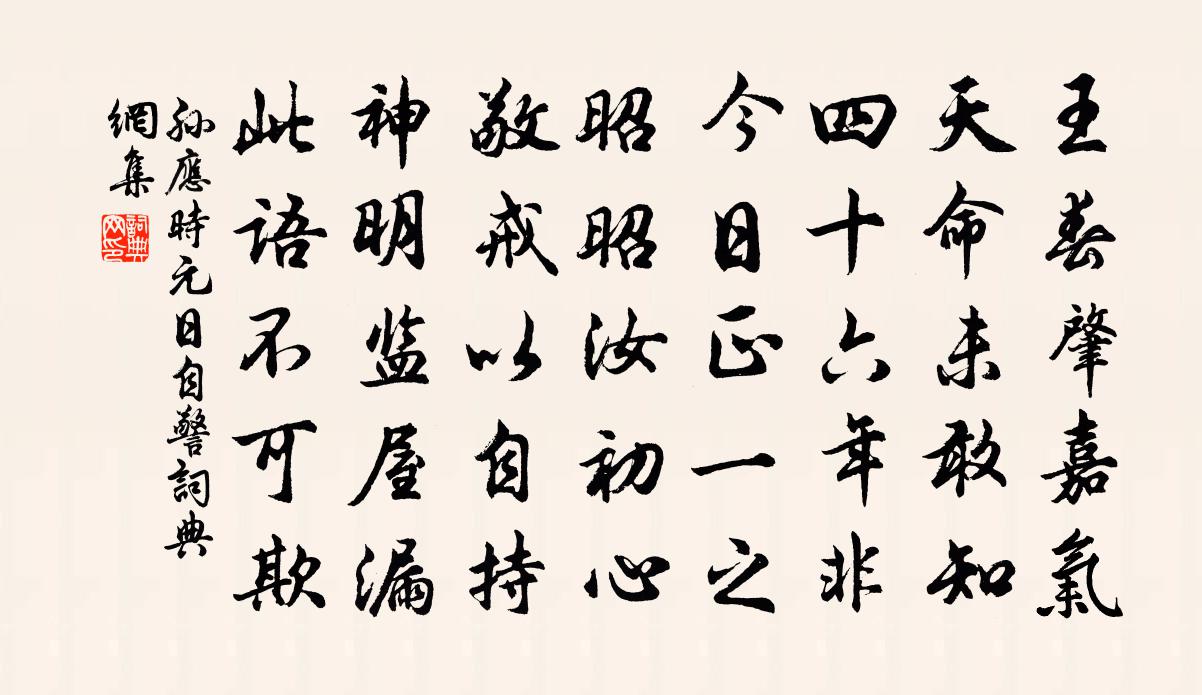 王春肇嘉氣
天命未敢知
四十六年非
今日正一之
昭昭汝初心
敬戒以自持
神明监屋漏
此語不可欺
孙應時元日自警詞典
網集
詞典网印